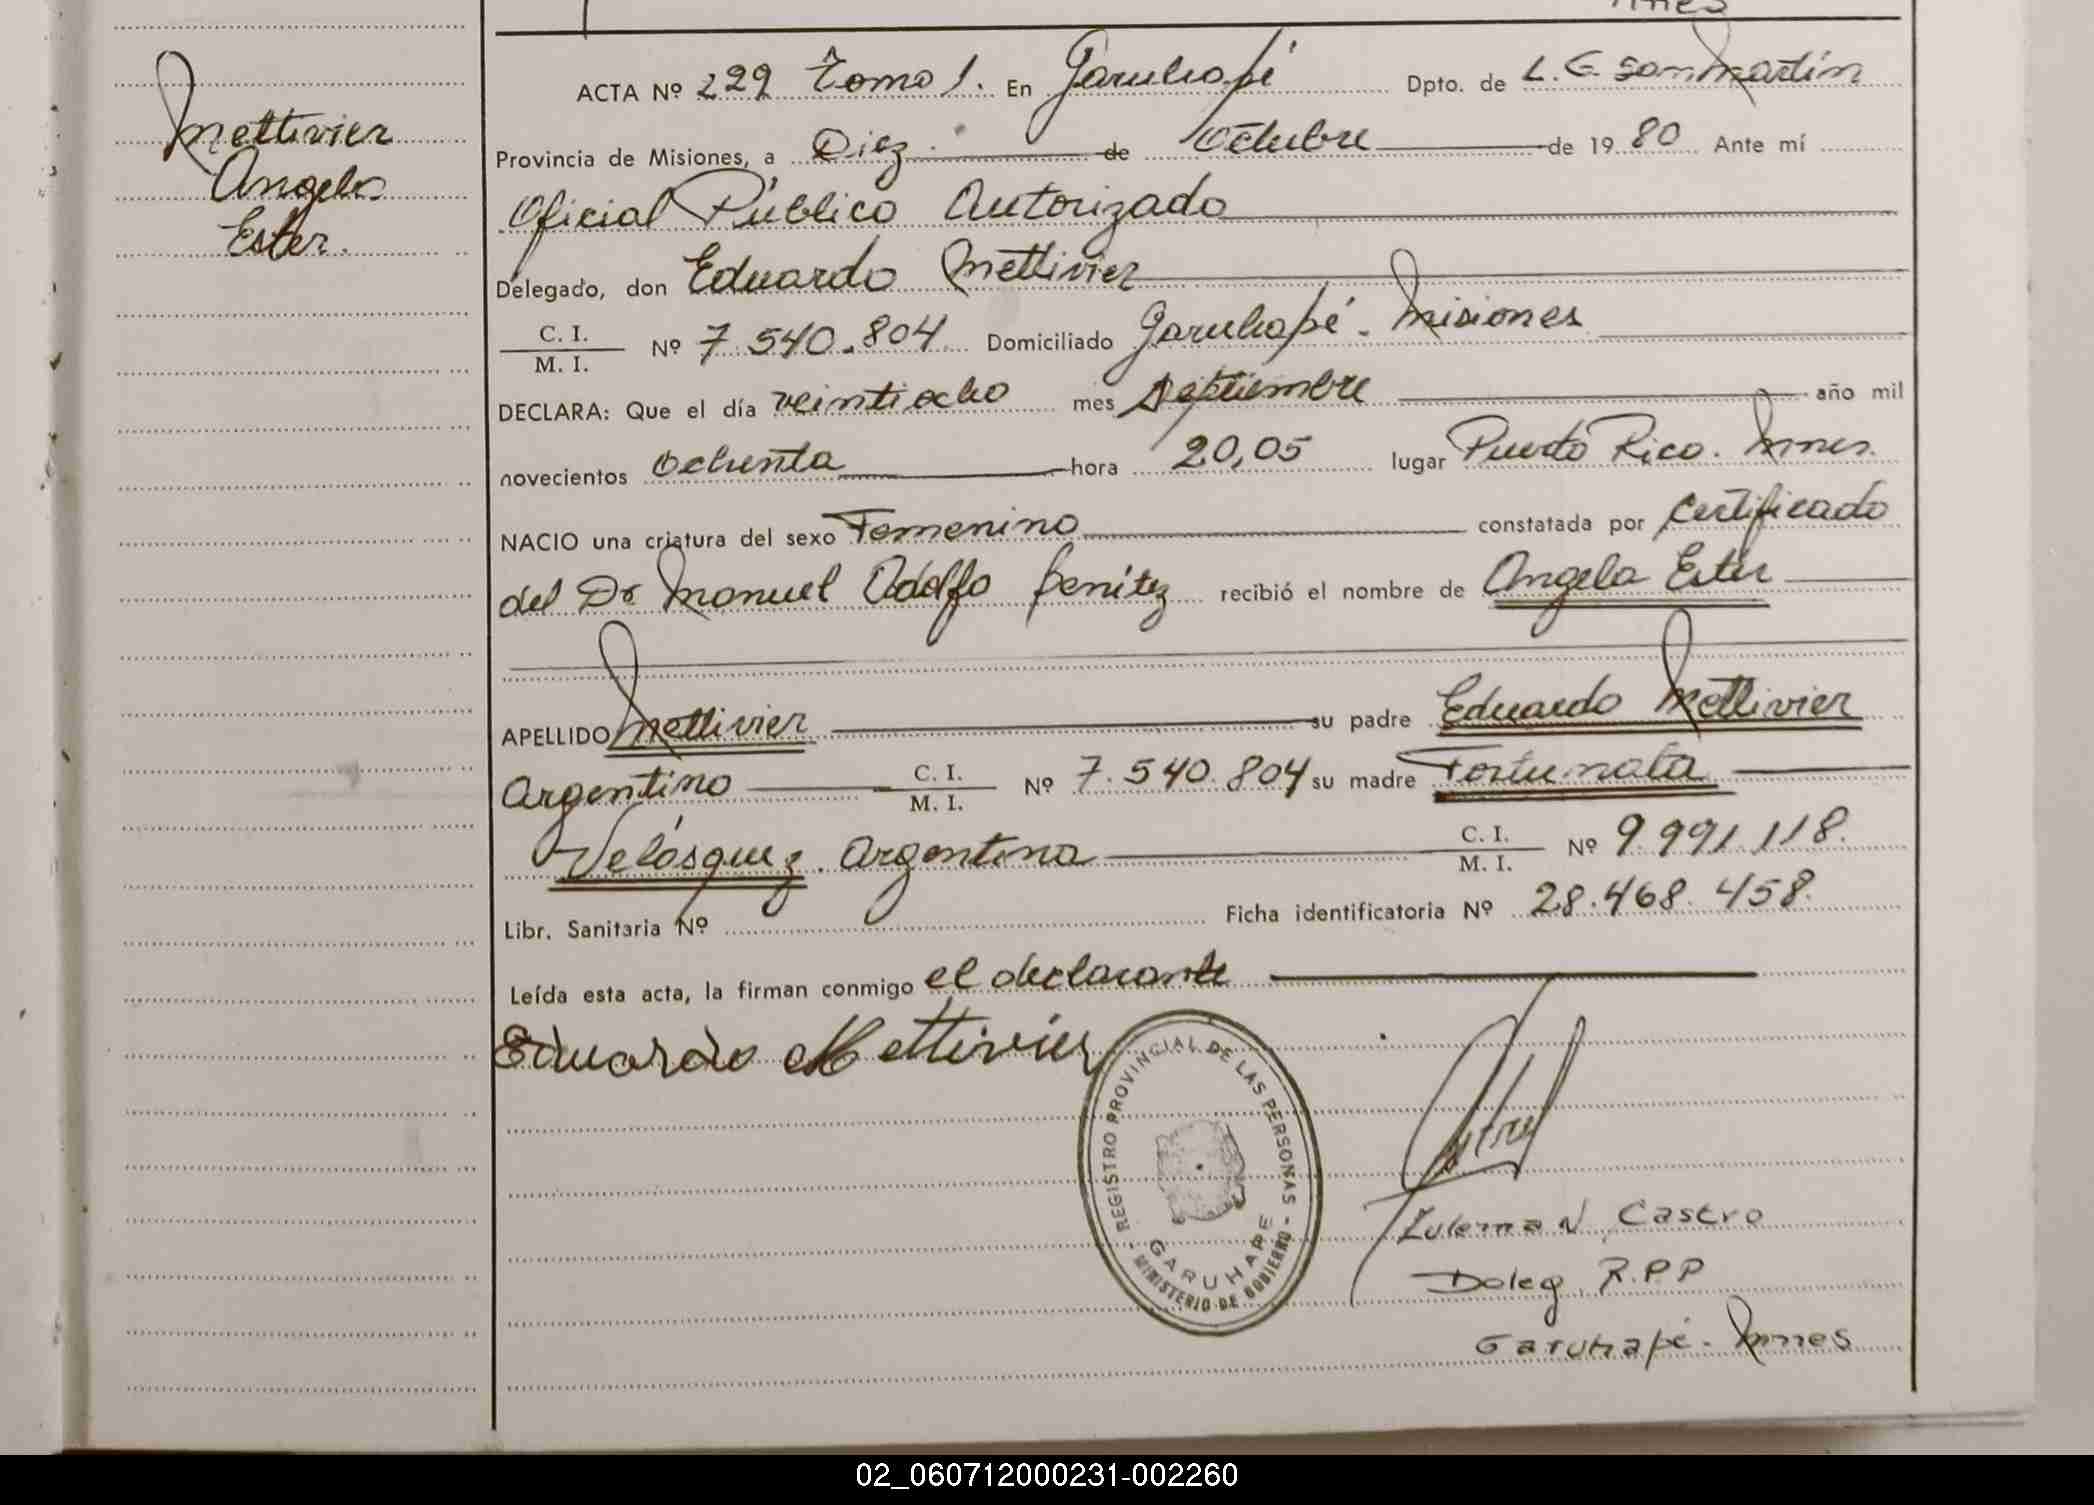 Mnes
Mettivier
Angela
Ester.
ACTA Nº 229 Tomo 1. En Garuhapé Dpto. de L. G. San Martín
Provincia de Misiones, a Diez de Octubre de 1980 Ante mí
Oficial Público Autorizado
Delegado, don Eduardo Mettivier
C. I.
M. I. Nº 7.540.804 Domiciliado Garuhapé - Misiones
DECLARA: Que el día veintiocho mes Septiembre año mil
novecientos ochenta hora 20,05 lugar Puerto Rico. Mnes.
NACIO una criatura del sexo Femenino constatada por Certificado
del Dr Manuel Adolfo Benítez recibió el nombre de Angela Ester
APELLIDO Mettivier su padre Eduardo Mettivier
Argentino C. I. M. I. Nº 7.540.804 su madre Fortunata
Velásquez. Argentina C. I. M. I. Nº 9.991.118.
Libr. Sanitaria Nº Ficha identificatoria Nº 28.468.458.
Leída esta acta, la firman conmigo el declarante
Eduardo Mettivier
REGISTRO PROVINCIAL DE LAS PERSONAS
GARUHAPE
- MINISTERIO DE GOBIERNO -
Zulema N. Castro
Deleg. R.P.P
Garuhapé - Mnes
02_060712000231-002260